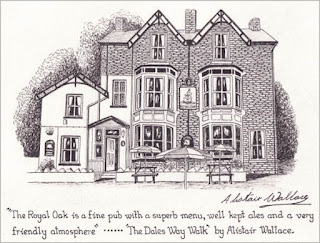 Alistair Wallace
"The Royal Oak is a fine pub with a superb menu, well kept ales and a very
friendly atmosphere" ...... "The Dales Way Walk" by Alistair Wallace.